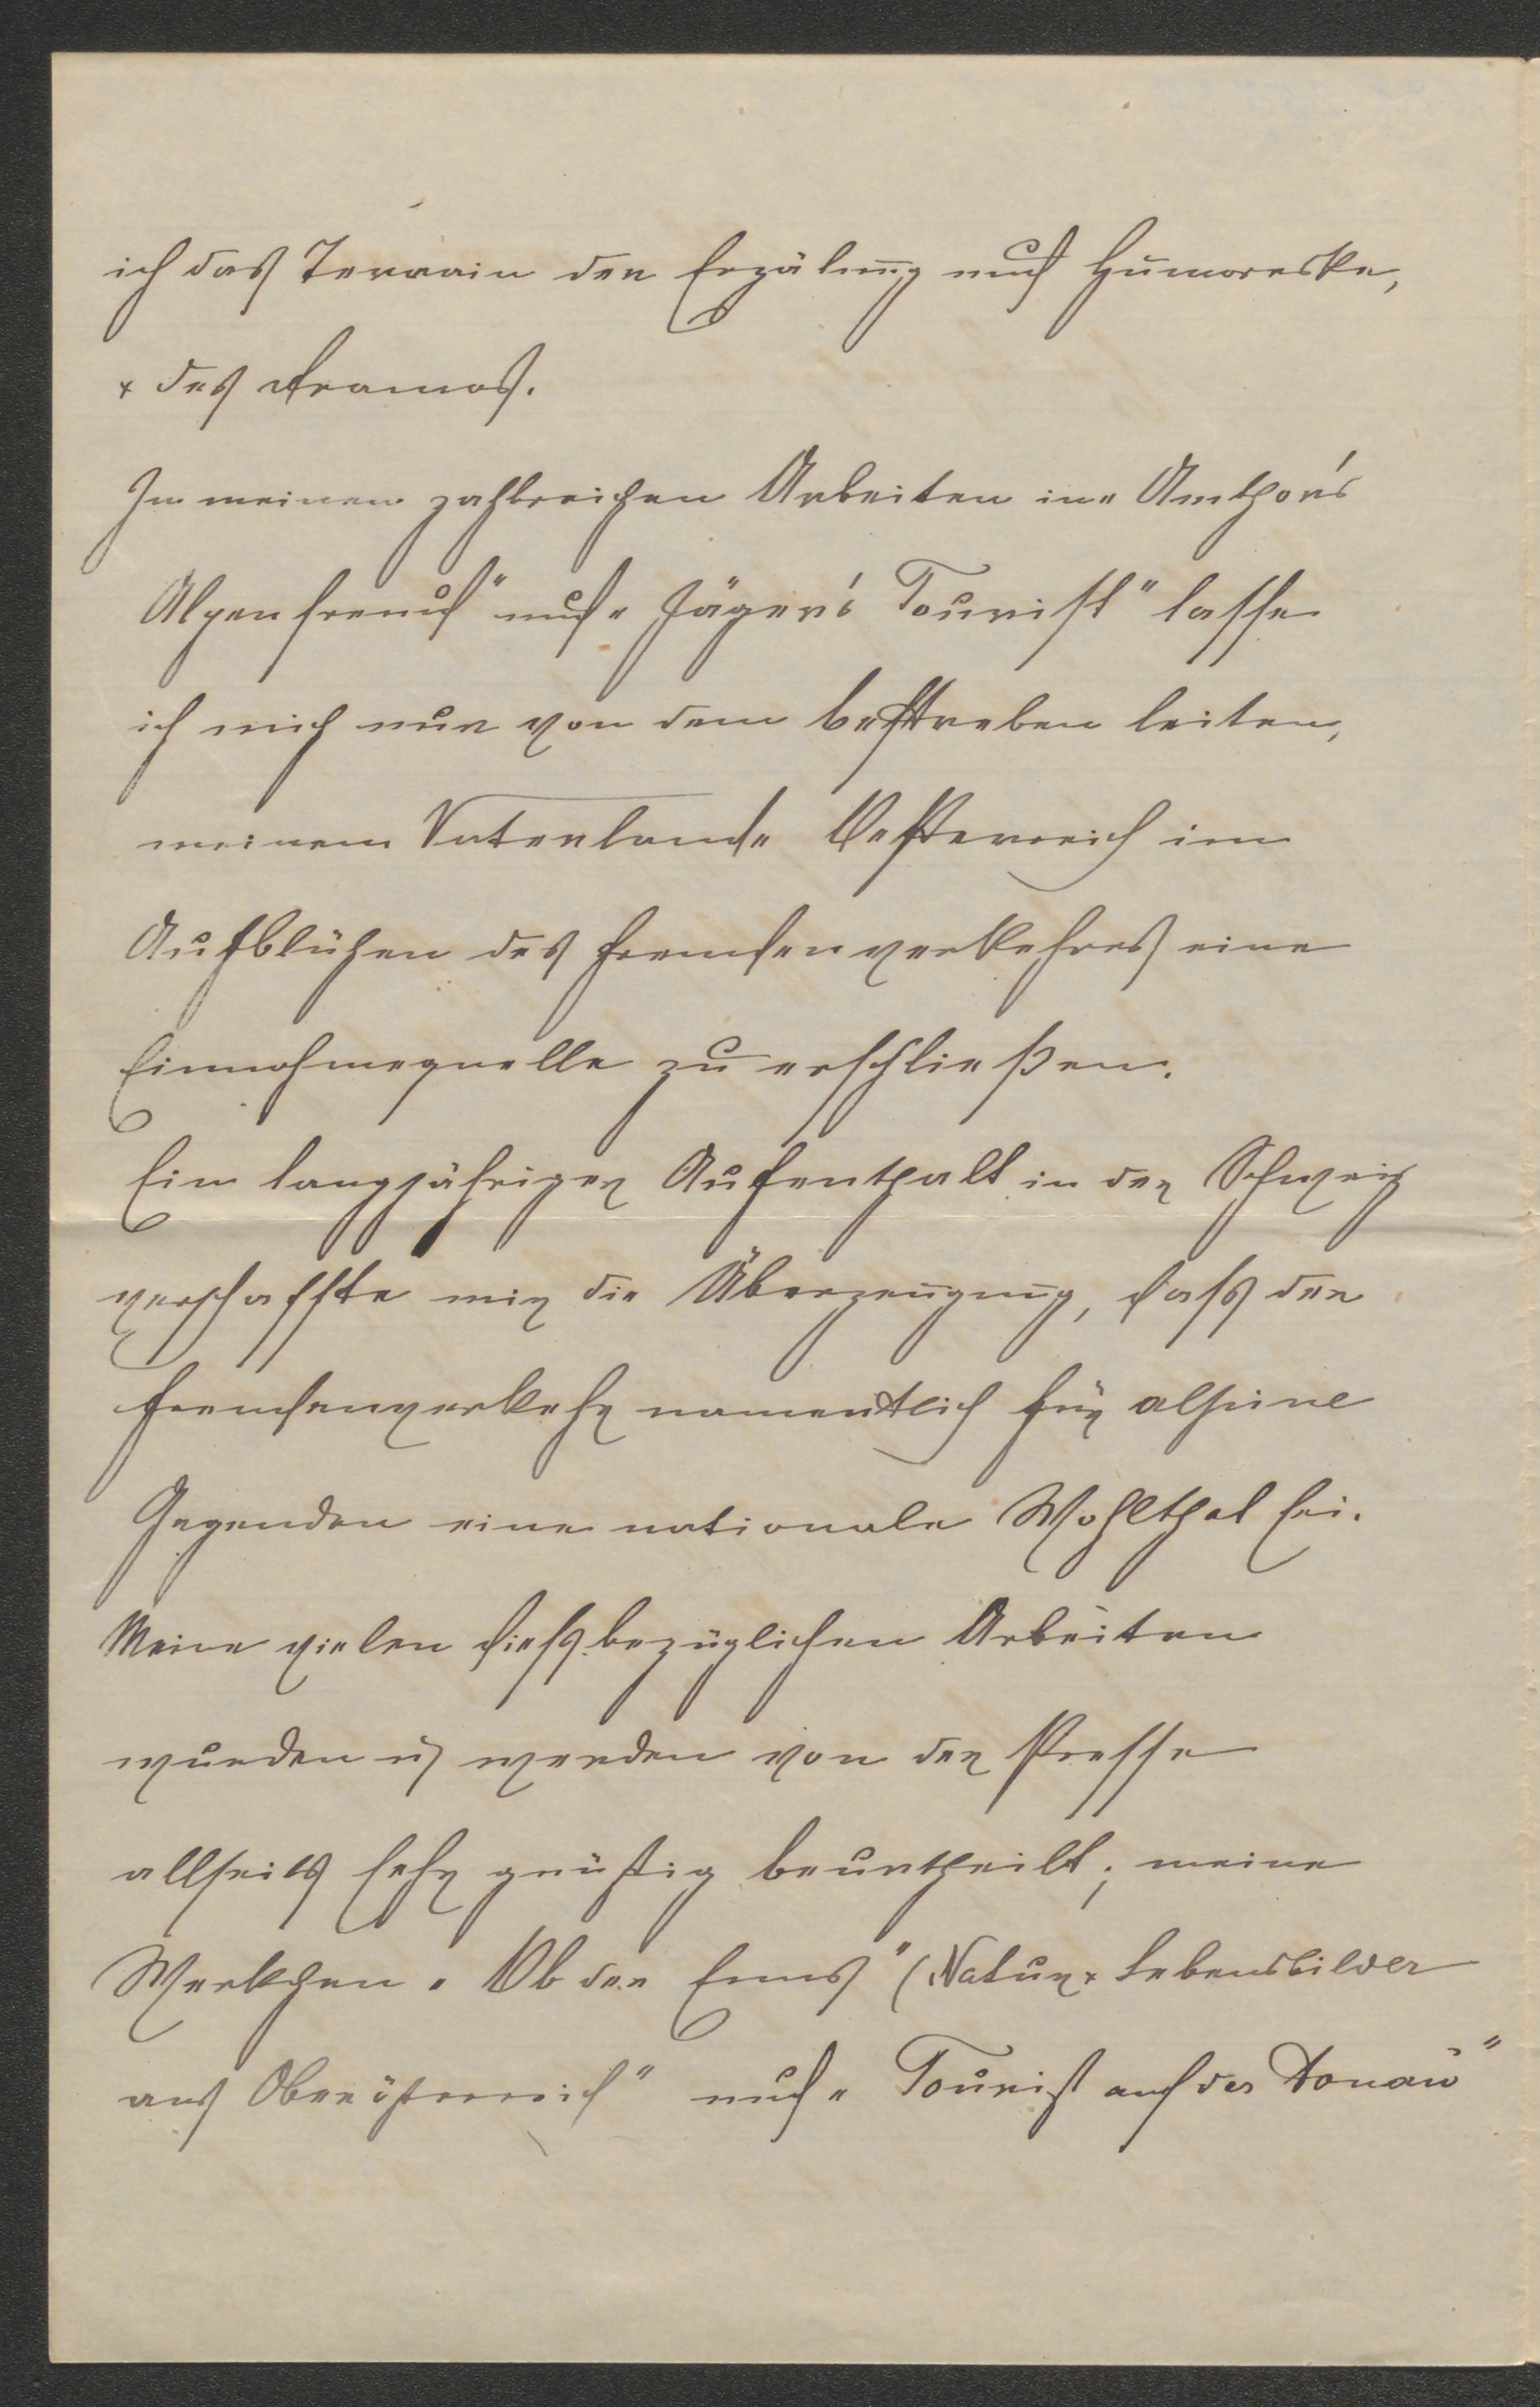 ich das Terrain der Erzälung und Humoreske,
+ des Dramas.
In meinen zahlreichen Arbeiten in „Amthor's
Alpenfreund" und „Jäger's Tourist" lasse
ich mich nur von dem Bestreben leiten,
meinem Vaterlande Oesterreich im
Aufblühen des Fremdenverkehres eine
Einnahmequelle zu erschließen.
Ein langjähriger Aufenthalt in der Schweiz
verschaffte mir die Überzeugung, daß der
Fremdenverkehr namentlich für alpine
Gegenden eine nationale Wohlthat sei.
Meine vielen dießbezüglichen Arbeiten
wurden u werden von der Presse
allseits sehr günstig beurtheilt; meine
Werkchen „Ob der Enns" (Natur + Lebensbilder
aus Oberösterreich" und „Tourist auf der Donau"